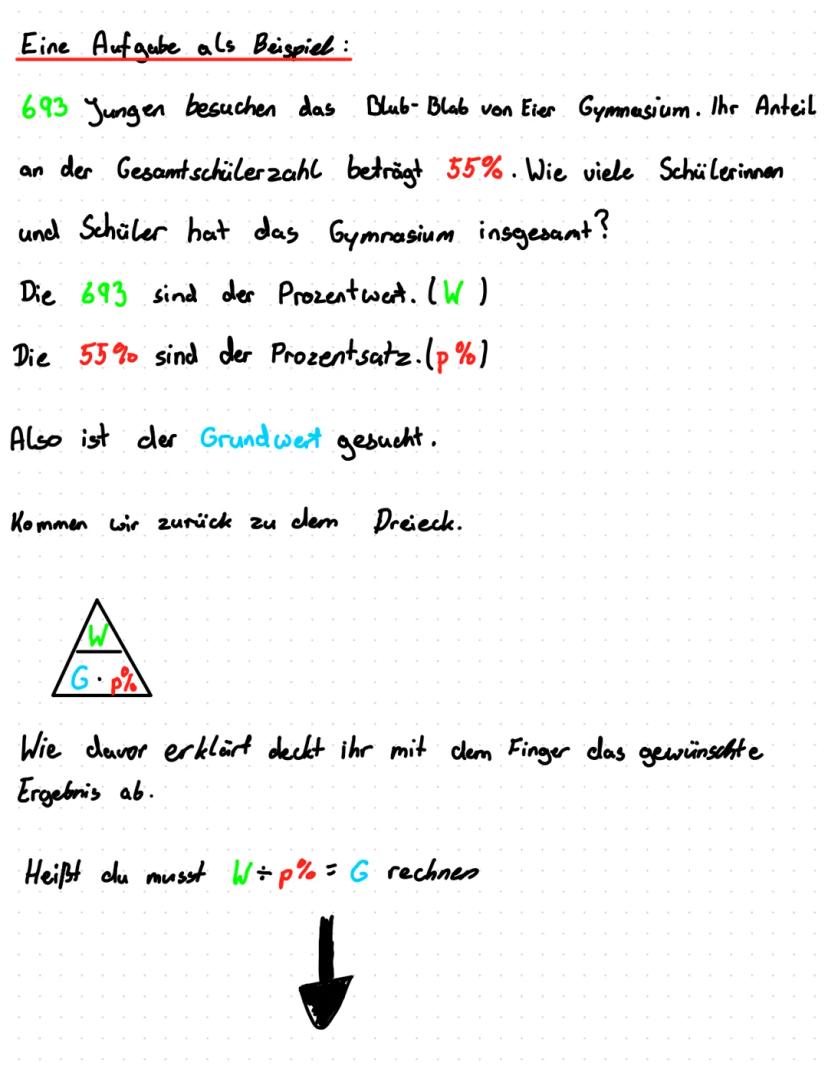 Eine Aufgabe als Beispiel:
693 Jungen besuchen das Blub-Blab von Eier Gymnasium. Ihr Anteil
an der Gesamtschülerzahl beträgt 55%. Wie viele Schülerinnen
und Schüler hat das Gymnasium insgesamt?
Die 693 sind der Prozentwert. (W)
Die 55% sind der Prozentsatz. (p%)
Also ist der Grundwert gesucht.
Kommen wir zurück zu dem Dreieck.
W
G · p%
Wie davor erklärt deckt ihr mit dem Finger das gewünschte
Ergebnis ab.
Heißt du musst W ÷ p% = G rechnen